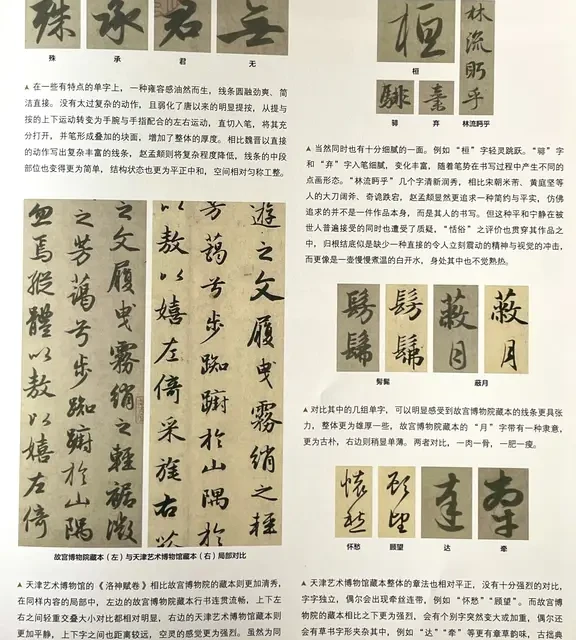 殊 承 君 無
殊 承 君 无
▲ 在一些有特点的单字上，一种雍容感油然而生，线条圆融劲爽、简
洁直接。没有太过复杂的动作，且弱化了唐以来的明显提按，从提与
按的上下运动转变为手腕与手指配合的左右运动，直切入笔，将其充
分打开，并笔形成叠加的块面，增加了整体的厚度。相比魏晋以直接
的动作写出复杂丰富的线条，赵孟頫则将复杂程度降低，线条的中段
部位也变得更为简单，结构状态也更为平正中和，空间相对匀称工整。
之文履曳霧綃之輕裾微
之芳藹兮步踟蹰於山隅
忽焉縱體以敖以嬉左倚
遊之文履曳霧綃之輕
芳藹兮步踟蹰於山隅於
以敖以嬉左倚采旄右
故宫博物院藏本（左）与天津艺术博物馆藏本（右）局部对比
▲ 天津艺术博物馆的《洛神赋卷》相比故宫博物院的藏本则更加清秀，
在同样内容的局部中，左边的故宫博物院藏本行书连贯流畅，上下左
右之间轻重交叠大小对比都相对明显，右边的天津艺术博物馆藏本则
更加平静，上下字之间也距离较远，空灵的感觉更为强烈。虽然为同
桓
林流眄乎
桓
騑 棄
騑 弃 林流眄乎
▲ 当然同时也有十分细腻的一面。例如“桓”字轻灵跳跃。“騑”字
和“弃”字入笔细腻，变化丰富，随着笔势在书写过程中产生不同的
点画形态。“林流眄乎”几个字清新润秀，相比宋朝米芾、黄庭坚等
人的大刀阔斧、奇诡跌宕，赵孟頫显然更追求一种简约与平实，仿佛
追求的并不是一件作品本身，而是其人的书写。但这种平和宁静在被
世人普遍接受的同时也遭受了质疑，“恬俗”之评价也贯穿其作品之
中，归根结底似是缺少一种直接的令人立刻震动的精神与视觉的冲击，
而更像是一壶慢慢煮温的白开水，身处其中也不觉熟热。
髣髴 髣髴 蔽月 蔽月
髣髴 蔽月
▲ 对比其中的几组单字，可以明显感受到故宫博物院藏本的线条更具张
力，整体更为雄厚一些，故宫博物院藏本的“月”字带有一种隶意，
更为古朴，右边则稍显单薄。两者对比，一肉一骨，一肥一瘦。
懷愁 顧望 達 牽
怀愁 顾望 达 牵
▲ 天津艺术博物馆藏本整体的章法也相对平正，没有十分强烈的对比，
字字独立，偶尔会出现牵丝连带，例如“怀愁”“顾望”。而故宫博物
院的藏本相比之下更为强烈，会有个别字突然变大或加重，偶尔还
会有章草书字形夹杂其中，例如“达”“牵”等更有章草韵味，古拙典